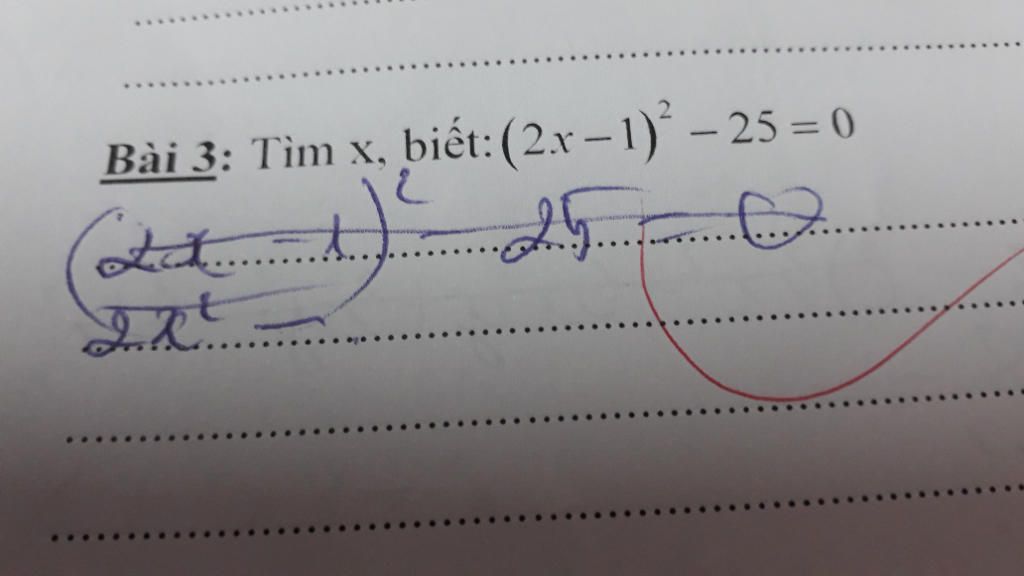 Bài 3: Tìm x, biết: (2x − 1)² − 25 = 0
(2x − 1)² − 25 = 0
2x² −